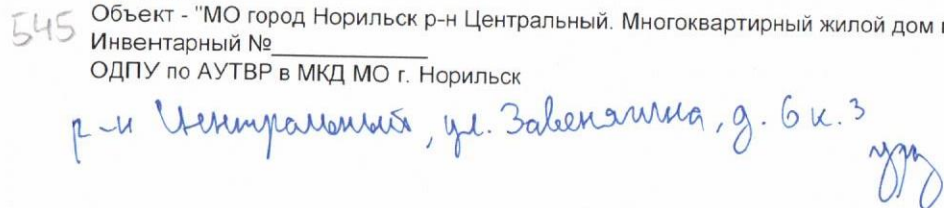 545 Объект - "МО город Норильск р-н Центральный. Многоквартирный жилой дом
Инвентарный №
ОДПУ по АУТВР в МКД МО г. Норильск
р-н Центральный, ул. Завенягина, д. 6 к. 3